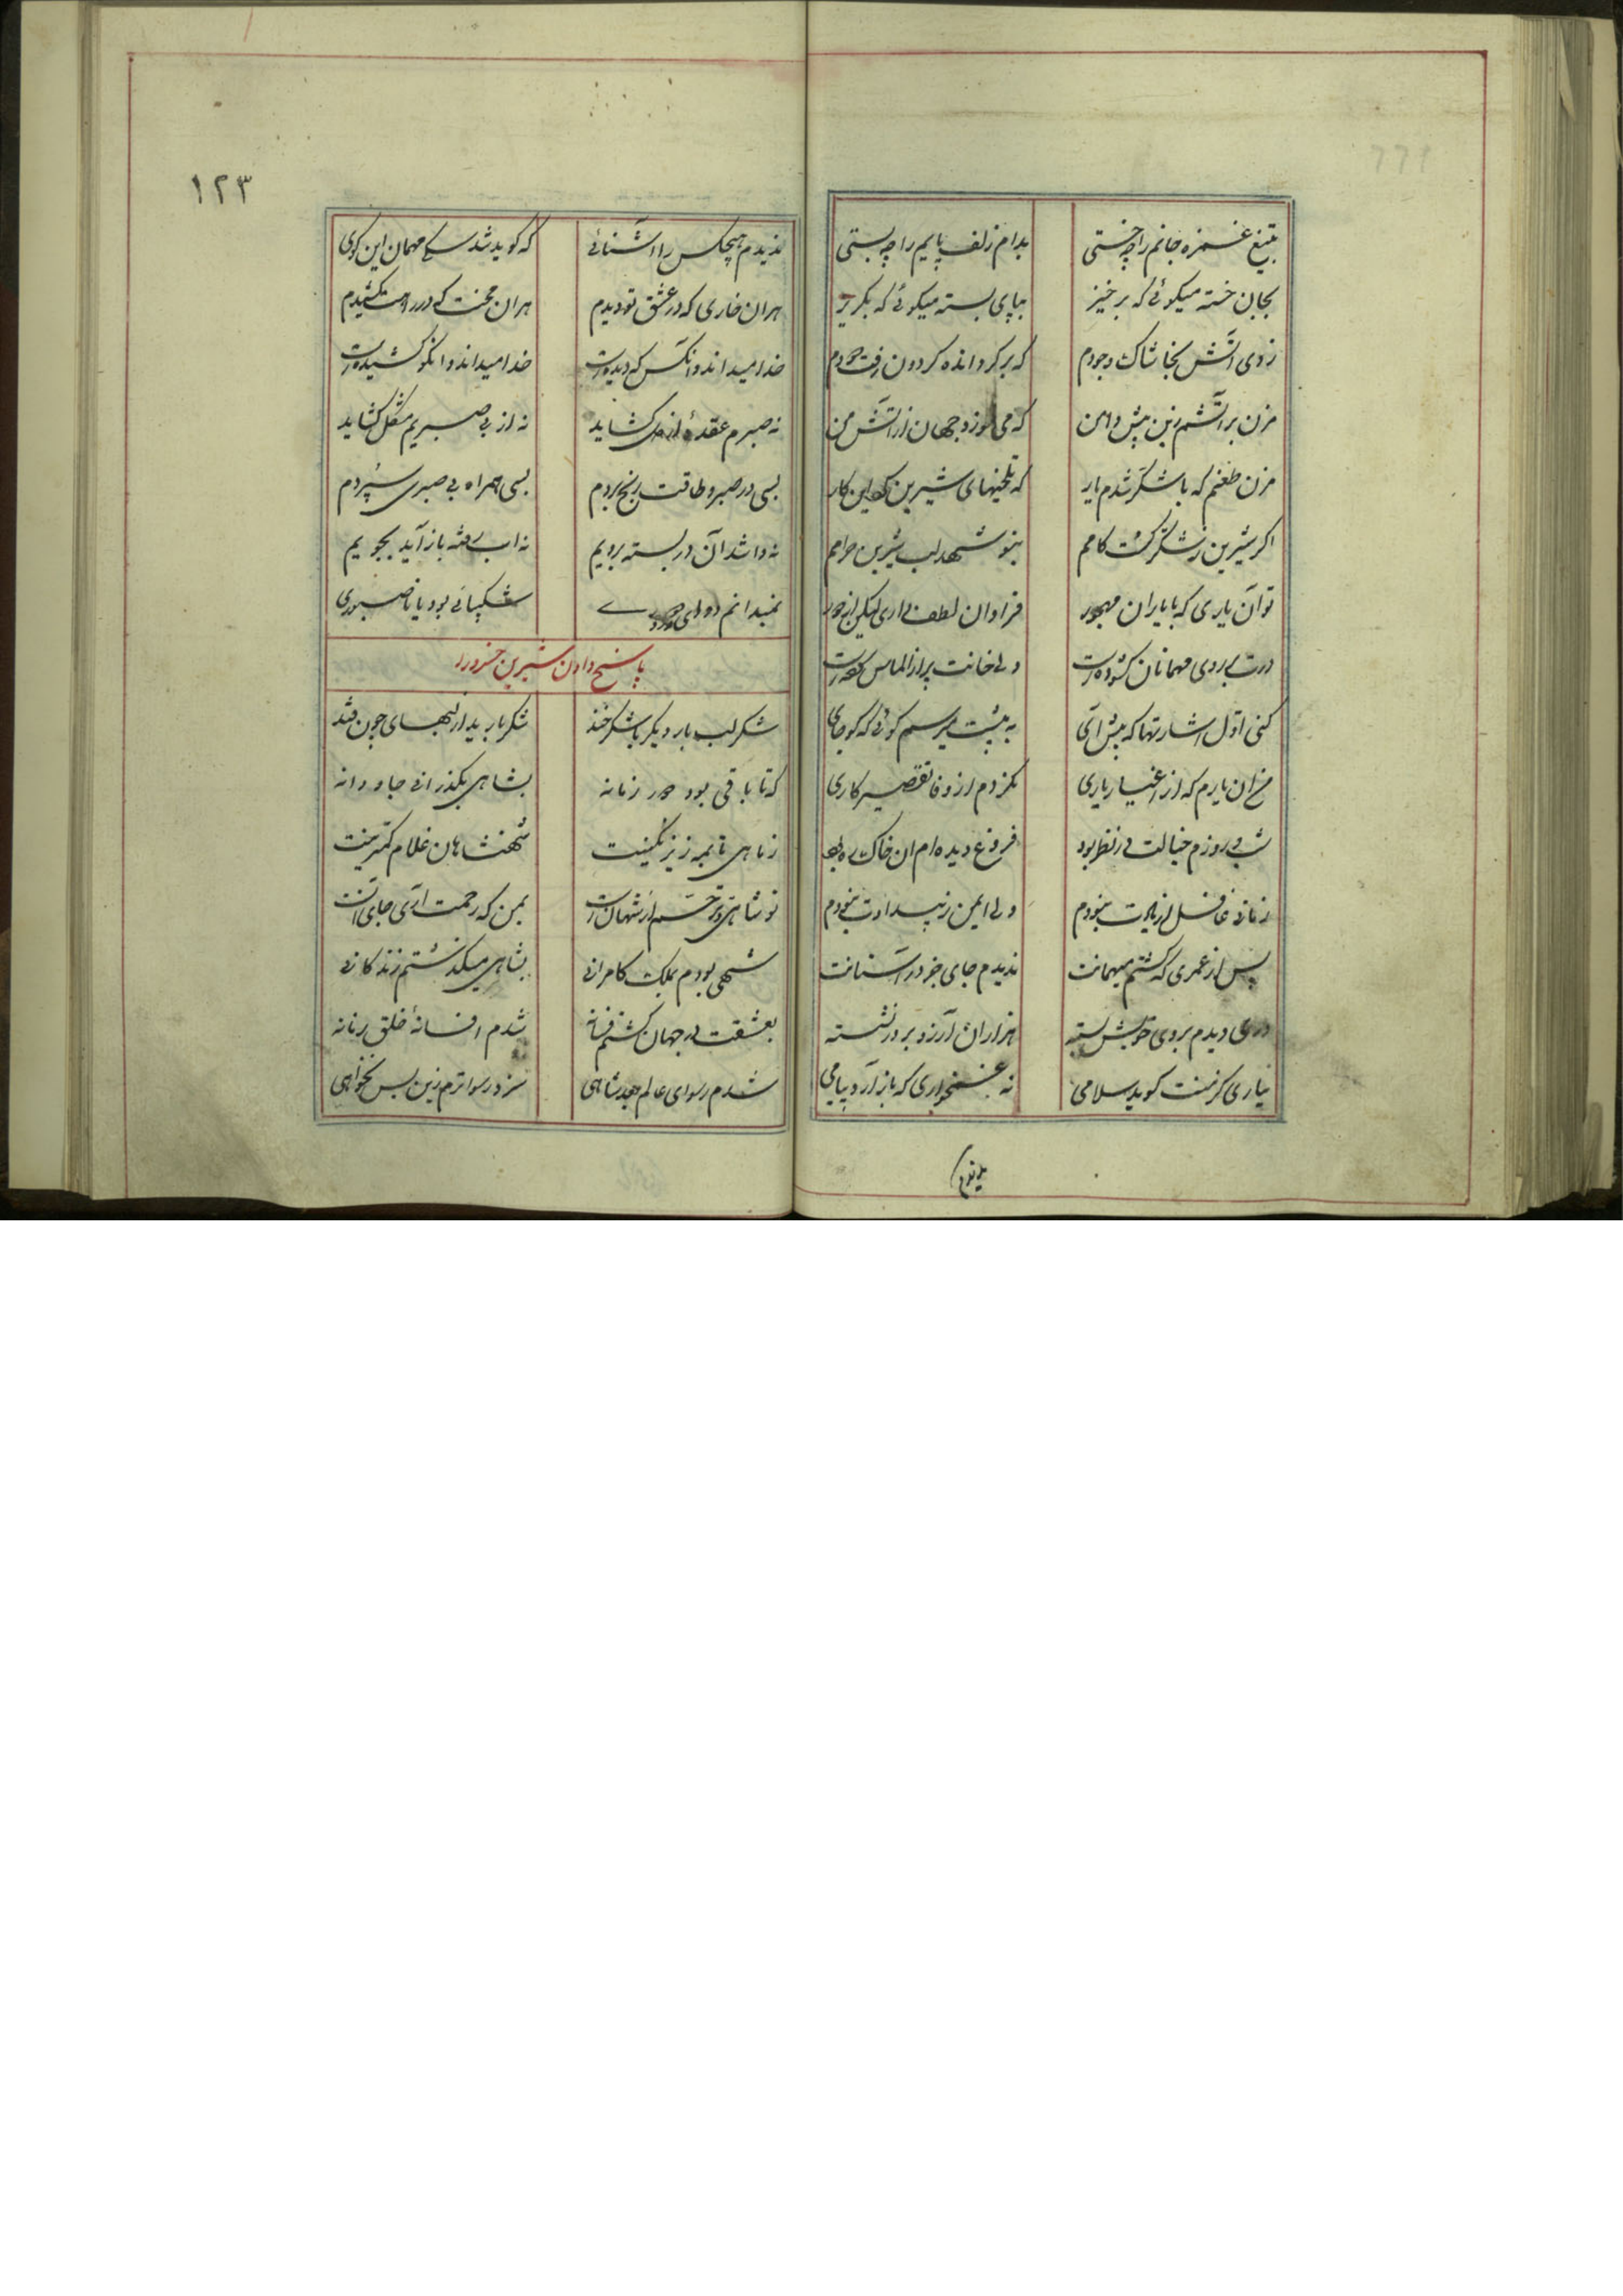 بتیغ غمزه جانم را چه خستی بدام زلف پایم را چه بستی
بجان خسته میکوئی که برخیز بپای بسته میکوئی که بکریز
زدی اتش بخاشاک وجودم که بر کردانده کردون رفت دودم
مزن بر آتشم زین بیش دامن که می سوزد جهان از آتش من
مزن طعنم که با شکر شدم یار که تلخیهای شیرین کرد این کار
اکر شیرین ز شکر کشت کامم بنوشهد لب شیرین حرامم
تو آن یاری که با یاران مهجور فراوان لطف داری لیکن از دور
درت بر روی مهمانان کشوده است ولی خانت پر از الماس سوده است
کنی اول اشارتها که پیش آی به پیشت میرسم کوئی که کو جای
من ان یارم که از اغیار یاری نکردم از وفا تقصیر کاری
شب و روزم خیالت در نظر بود فروغ دیده ام ان خاک در بود
زمانی غافل از یادت نبودم ولی ایمن ز بیدادت نبودم
پس از عمری که کشتم میهمانت ندیدم جای خود در آستانت
دری دیدم بروی خویش بسته هزاران آرزو بر در نشسته
نه یاری کز منت کوید سلامی نه غمخواری که باز آرد پیامی
۱۲۳
ندیدم هیچکس را آشنائی که کوید شد کسی مهمان این کوی
هران خاری که در عشق تو دیدم هران محنت که در راهت کشیدم
خدا میداند و انکس که دیده است خدا میداند و انکو کشیده است
نه صبرم عقدهٔ از دل کشاید نه از بی صبریم مشکل کشاید
بسی در صبر و طاقت رنج بردم بسی همراه بی صبری سپردم
نه وا شد آن در بسته برویم نه اب رفته باز آید بجویم
نمیدانم دوای شکیبائی بود یا ناصبوری
پاسخ دادن شیرین خسرو را
شکرلب بار دیکر با شکرخند شکر بارید از لبهای چون قند
که تا باقی بود دور زمانه بشاهی بکذرانی جاودانه
ز ماهی تا بمه زیر نکینت شهنشاهان غلام کمترینت
تو شاهی و ترحم از شهانست بمن که رحمت آری جای آنست
شهی بودم بملک کامرانی بشاهی میکذشتم زندکانی
بعشقت در جهان کشتم فسانه شدم افسانهٔ خلق زمانه
شدم رسوای عالم بعد شاهی سزد رسواترم زین پس نخواهی